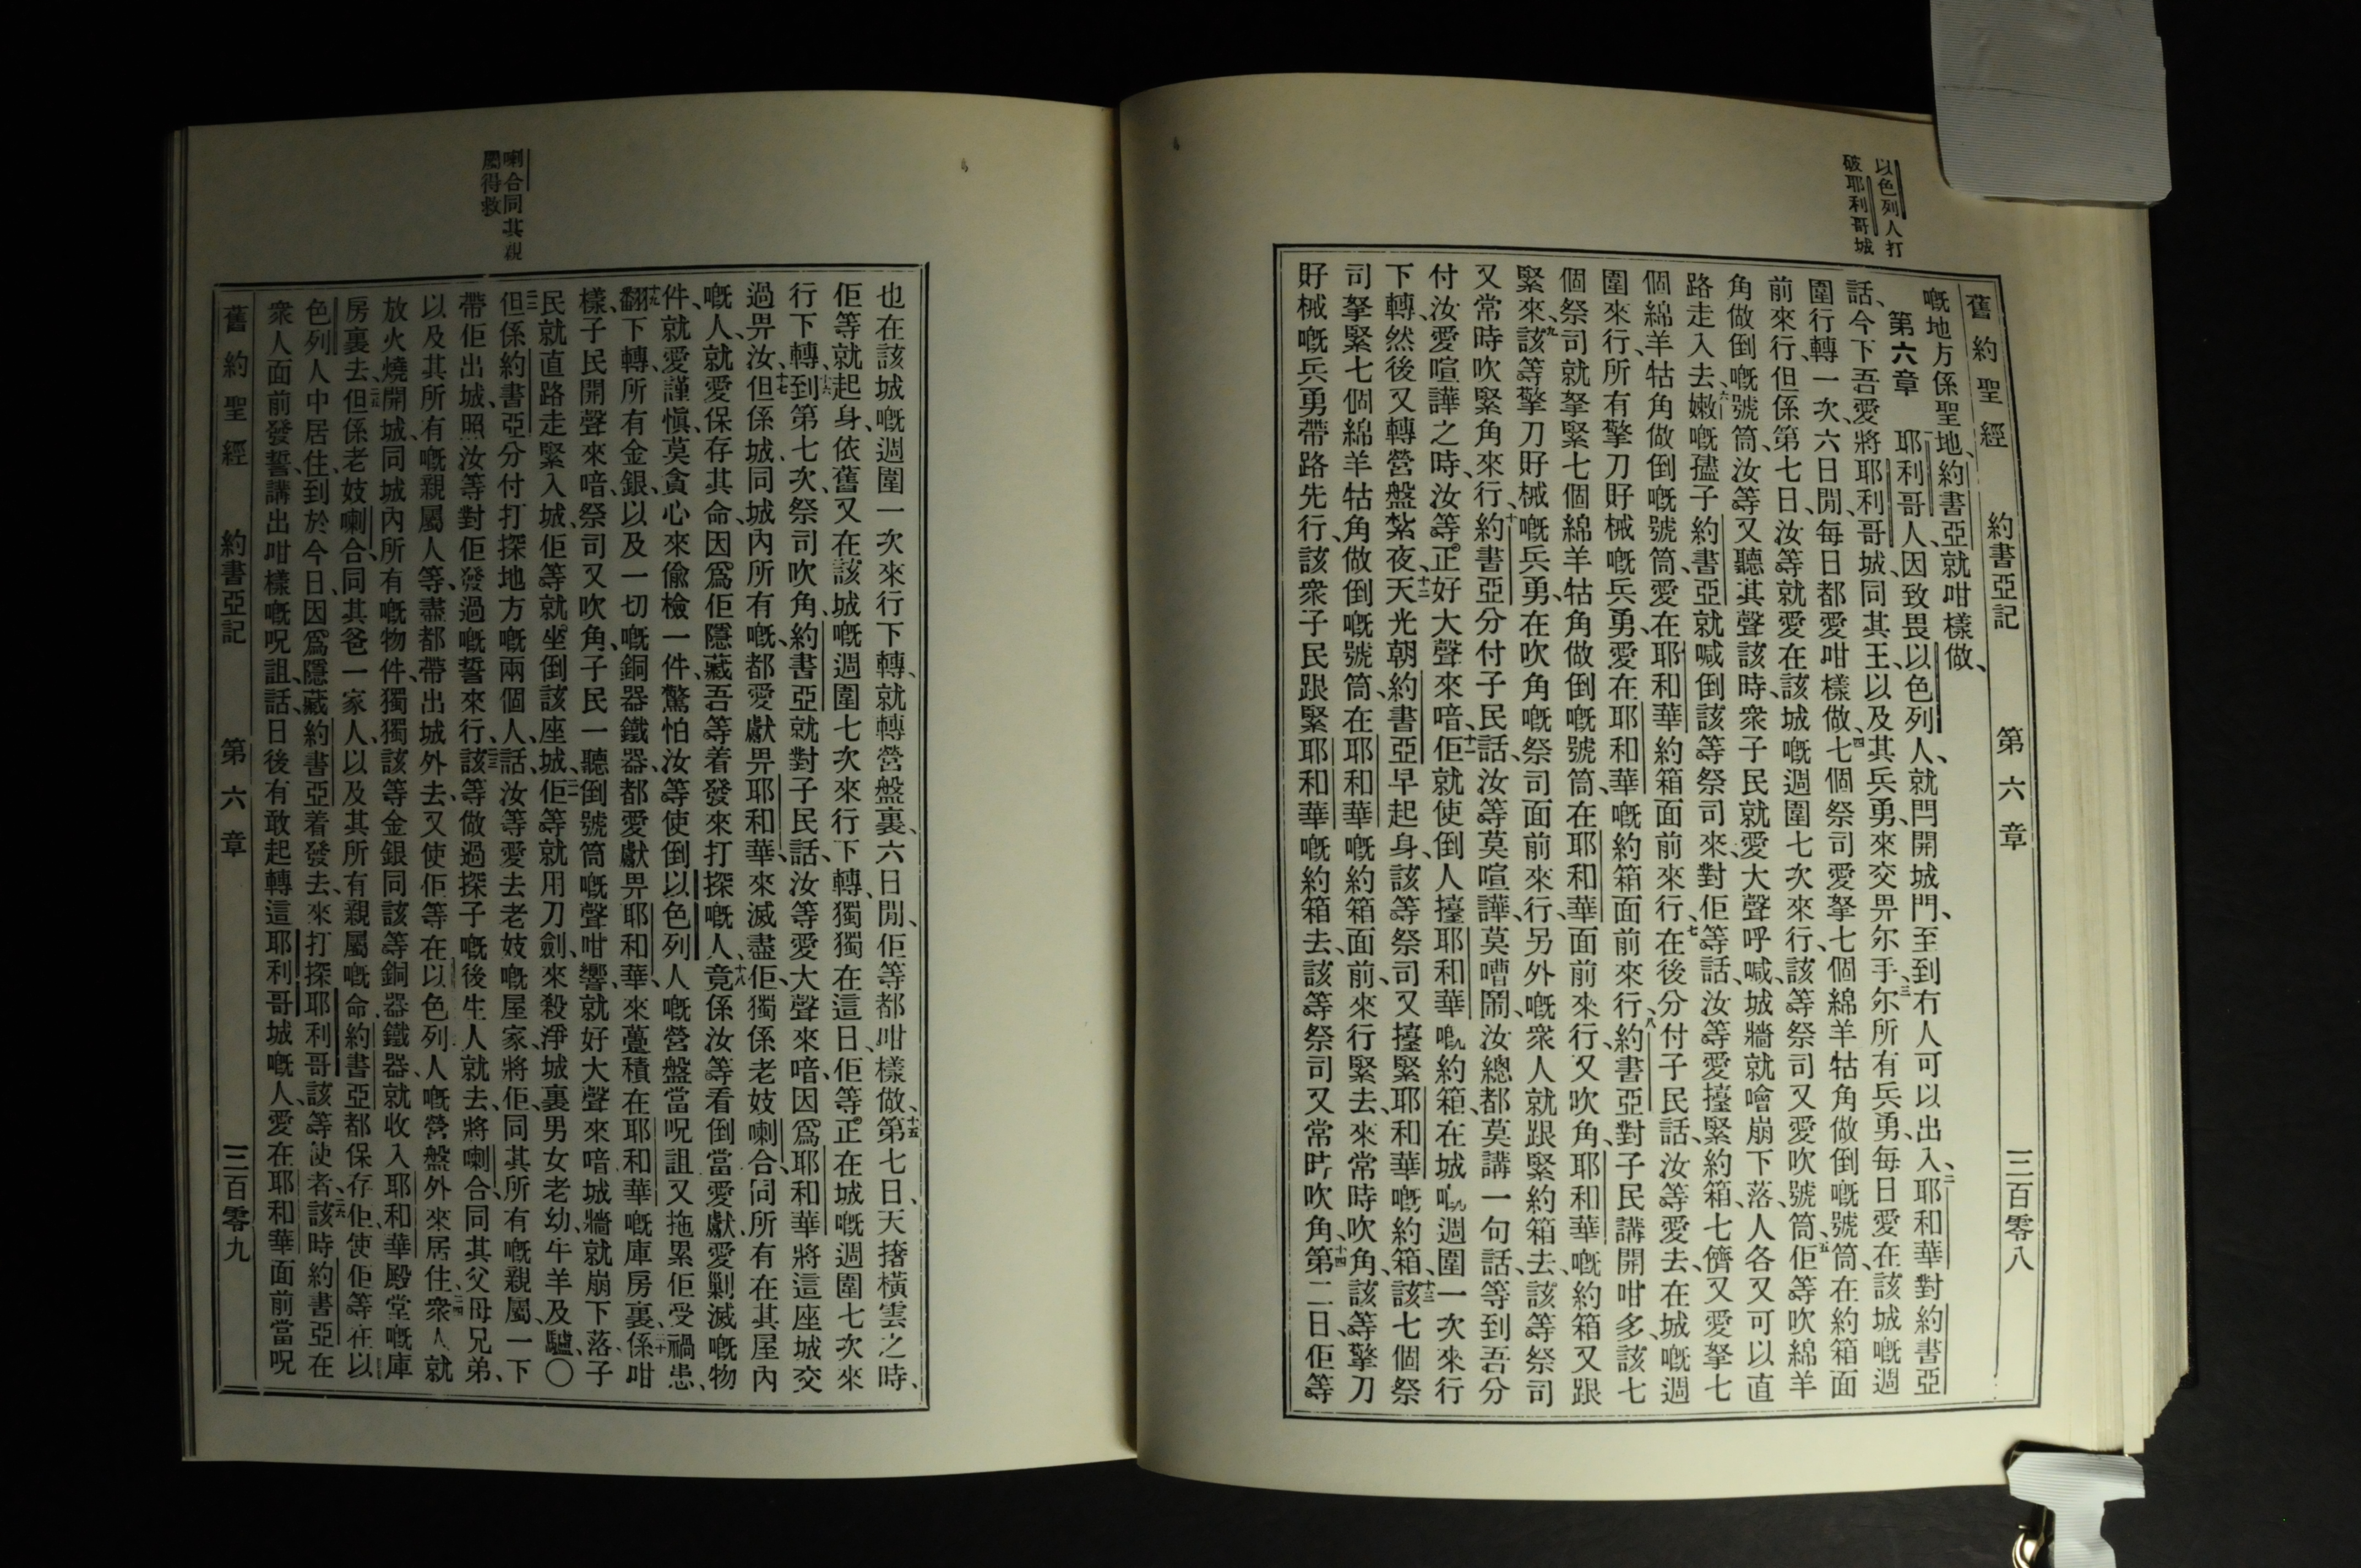 以色列人打
破耶利哥城
舊約聖經 約書亞記 第六章 三百零八
嘅地方係聖地、約書亞就咁樣做、
第六章 耶利哥人、因致畏以色列人、就閂開城門、至到冇人可以出入、二耶和華對約書亞
話、今下吾愛將耶利哥城、同其王、以及其兵勇、來交畀尔手、三尔所有兵勇、每日愛在該城嘅週
圍行轉一次、六日閒、每日都愛咁樣做、四七個祭司愛拏七個綿羊牯角做倒嘅號筒、在約箱面
前來行、但係第七日、汝等就愛在該城嘅週圍七次來行、該等祭司又愛吹號筒、五佢等吹綿羊
角做倒嘅號筒、汝等又聽其聲、該時、衆子民就愛大聲呼喊、城牆就噲崩下落、人各又可以直
路走入去、六嫩嘅孻子約書亞就喊倒該等祭司來、對佢等話、汝等愛擡緊約箱、七儕又愛拏七
個綿羊牯角做倒嘅號筒、愛在耶和華約箱面前來行、七在後分付子民話、汝等愛去、在城嘅週
圍來行、所有擎刀好械嘅兵勇、愛在耶和華嘅約箱面前來行、八約書亞對子民講開咁多、該七
個祭司就拏緊七個綿羊牯角做倒嘅號筒、在耶和華面前來行、又吹角、耶和華嘅約箱又跟
緊來、九該等擎刀好械嘅兵勇、在吹角嘅祭司面前來行、另外嘅衆人就跟緊約箱去、該等祭司
又常時吹緊角來行、十約書亞分付子民話、汝等莫喧譁、莫嘈鬧、汝總都莫講一句話、等到吾分
付汝愛喧譁之時、汝等正好大聲來喑、十一佢就使倒人擡耶和華嘅約箱、在城嘅週圍一次來行
下轉、然後又轉營盤紮夜、十二天光朝約書亞早起身、該等祭司又擡緊耶和華嘅約箱、十三該七個祭
司拏緊七個綿羊牯角做倒嘅號筒、在耶和華嘅約箱面前、來行緊去、來常時吹角、該等擎刀
好械嘅兵勇帶路先行、該衆子民跟緊耶和華嘅約箱去、該等祭司又常時吹角、十四第二日、佢等
也在該城嘅週圍一次來行下轉、就轉營盤裏、六日閒、佢等都咁樣做、十五第七日、天撐橫雲之時、
佢等就起身、依舊又在該城嘅週圍七次來行下轉、獨獨在這日、佢等正在城嘅週圍七次來
行下轉、十六到第七次、祭司吹角、約書亞就對子民話、汝等愛大聲來喑、因爲耶和華將這座城交
過畀汝、十七但係城、同城內所有嘅、都愛獻畀耶和華、來滅盡佢、獨係老妓喇合、同所有在其屋內
嘅人、就愛保存其命、因爲佢隱藏吾等着發來打探嘅人、十八竟係汝等看倒當愛獻愛剿滅嘅物
件、就愛謹愼、莫貪心來偸檢一件、驚怕汝等使倒以色列人嘅營盤當呪詛、又拖累佢受禍患、
十九翻下轉、所有金銀、以及一切嘅銅器鐵器、都愛獻畀耶和華、來薹積在耶和華嘅庫房裏、二十係咁
樣、子民開聲來喑、祭司又吹角、子民一聽倒號筒嘅聲咁響、就好大聲來喑、城牆就崩下落、子
民就直路走緊入城、佢等就坐倒該座城、二一佢等就用刀劍、來殺淨城裏男女老幼、牛羊及驢、〇
二二但係約書亞分付打探地方嘅兩個人、話、汝等愛去老妓嘅屋家、將佢、同其所有嘅親屬、一下
帶佢出城、照汝等對佢發過嘅誓來行、二三該等做過探子嘅後生人就去、將喇合、同其父母兄弟、
以及其所有嘅親屬人等、盡都帶出城外去、又使佢等在以色列人嘅營盤外來居住、二四衆人就
放火燒開城、同城內所有嘅物件、獨獨該等金銀、同該等銅器鐵器、就收入耶和華殿堂嘅庫
房裏去、二五但係老妓喇合、同其爸一家人、以及其所有親屬嘅命、約書亞都保存佢、使佢等在以
色列人中居住、到於今日、因爲隱藏約書亞着發去、來打探耶利哥該等使者、二六該時約書亞在
衆人面前發誓、講出咁樣嘅呪詛、話、日後有敢起轉這耶利哥城嘅人、愛在耶和華面前當呪
舊約聖經 約書亞記 第六章 三百零九
喇合同其親
屬得救